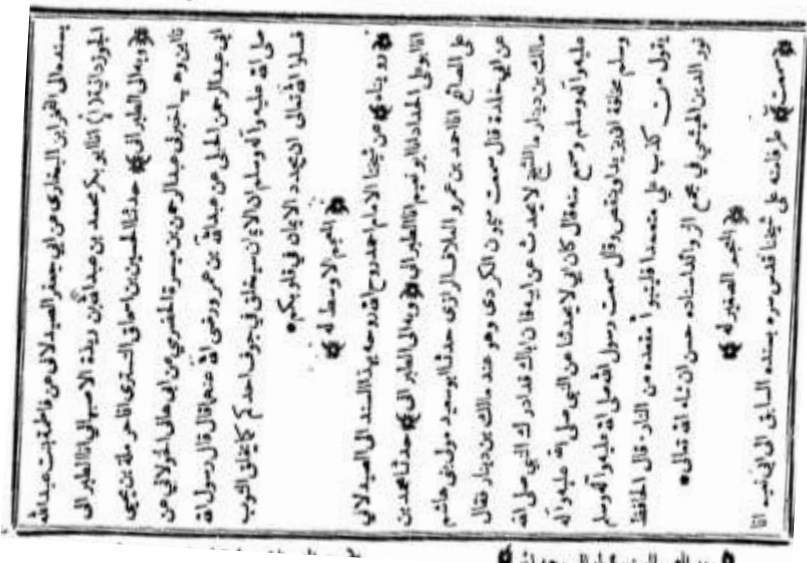 بسنده الى الفخر ابن البخارى عن ابي جعفر الصيدلاني عن فاطمة بنت عبدالله
الجوزدانية (أ) انا ابو بكر محمد بن عبدالله بن ريذة الاصبهاني انا الطبرانى
﴿وبه الى الطبرانى﴾ حدثنا الحسين بن اسحاق التسترى انا حرملة بن يحيى
نا ابن وهب اخبرنى عبدالرحمن بن ميسرة الحضرمي عن ابى هانى الخولانى عن
ابى عبدالرحمن الحبلى عن عبدالله بن عمر ورضى الله عنهما قال قال رسول الله
صلى الله عليه وآله وسلم ان الايمان سيخلق في جوف احدكم كما يخلق الثوب
فسلوا الله تعالى ان يجدد الايمان في قلوبكم*
﴿المعجم الاوسط له﴾
﴿رويناه﴾ عن شيخنا الامام احمد روح الله روحه بهذا السند الى الصيدلانى
انا ابو على الحداد انا ابو نعيم انا الطبرانى ﴿وبه الى الطبرانى﴾ حدثنا محمد بن
على الصائغ انا احمد بن عمرو العلاف الرازى حدثنا ابو سعيد مولى بنى هاشم
عن ابي خلدة قال سمعت ميمون الكردى وهو عند مالك بن دينار فقال
مالك بن دينار ما للشيخ لا يحدث عن ابيه فان اباك قد ادرك النبي صلى الله
عليه وآله وسلم وسمع منه قال كان ابي لا يحدثنا عن النبى صلى الله عليه وآله
وسلم مخافة ان يزيد او ينقص وقال سمعت رسول الله صلى الله عليه وآله وسلم
يقول من كذب علي متعمدا فليتبوأ مقعده من النار* قال الحافظ
نور الدين الهيثمي في مجمع الزوائد اسناده حسن ان شاء الله تعالى*
﴿المعجم الصغير له﴾
﴿سمعت﴾ طرفا منه على شيخنا قدس سره بسنده السابق الى ابى نعيم انا